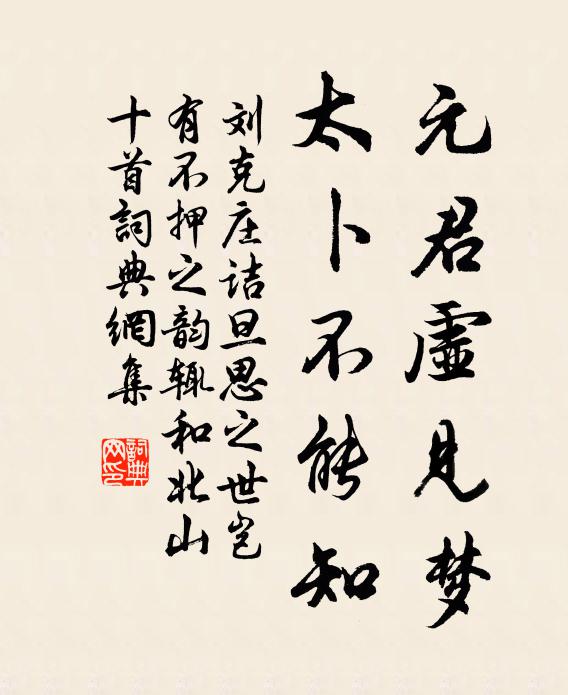 元君虛見梦
太卜不能知
刘克庄诘旦思之世岂
有不押之韵辄和北山
十首詞典網集
詞典網印